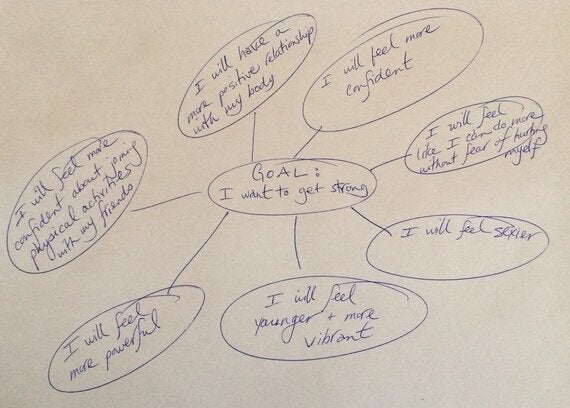 GOAL:
I want to get strong
I will have a
more positive relationship
with my body
I will feel more
confident
I will feel
like I can do more
without fear of hurting
myself
I will feel sexier
I will feel
younger + more
vibrant
I will feel
more powerful
I will feel more
confident about joining
physical activities
with my friends